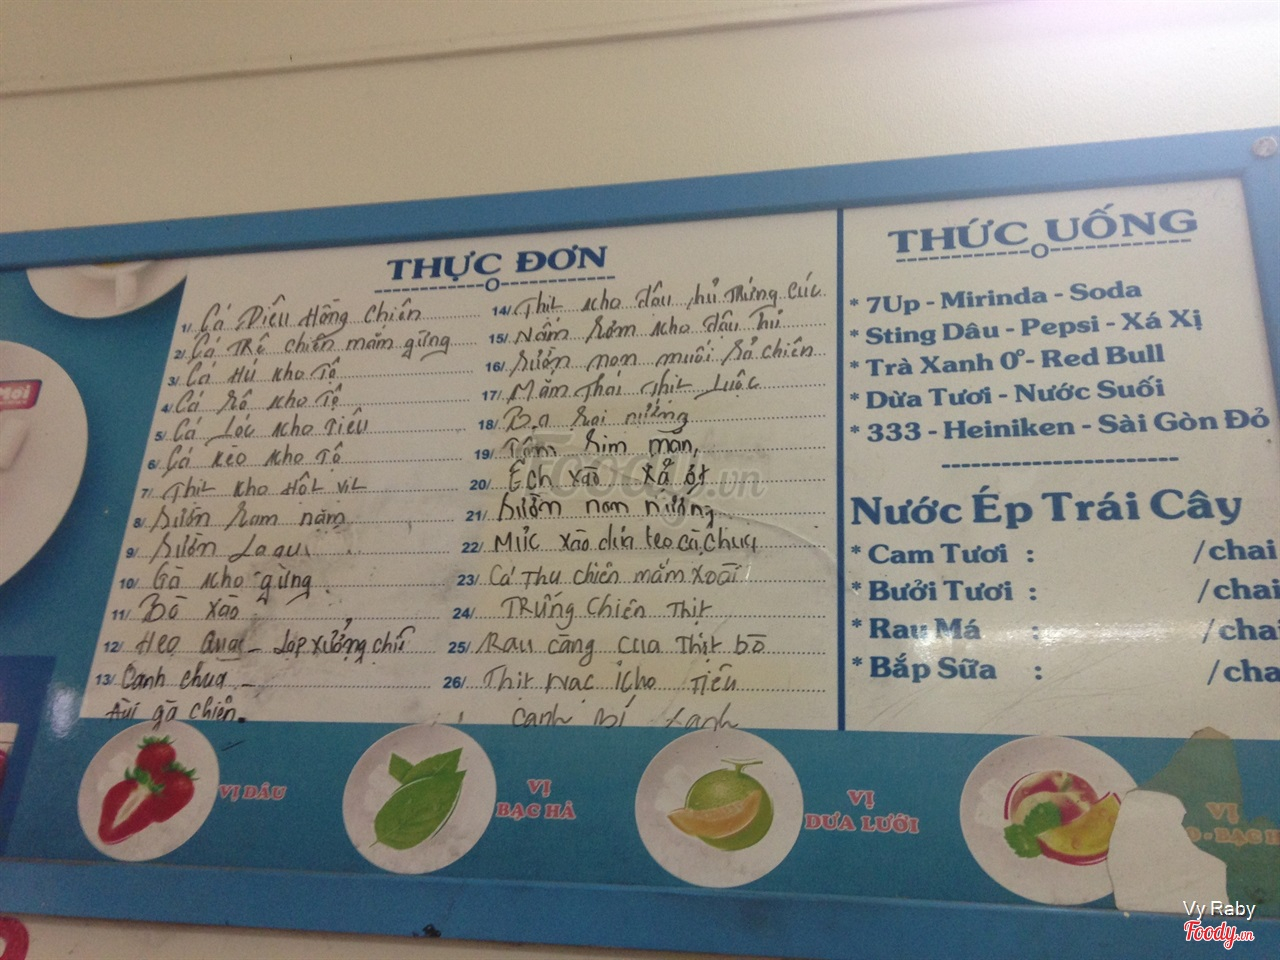 THỰC ĐƠN
1/ Cá Diêu Hồng Chiên
2/ Cá Trê chiên mắm gừng
3/ Cá Hú Kho Tộ
4/ Cá Rô Kho Tộ
5/ Cá Lóc Kho Tiêu
6/ Cá Kèo Kho Tộ
7/ Thịt Kho Hột Vịt
8/ Sườn Ram nặm
9/ Sườn Lagu
10/ Gà Kho gừng
11/ Bò Xào
12/ Heo Quay - Lạp xưởng chiên
13/ Canh chua -
gà chiên.
14/ Thịt Kho đậu hủ Trứng Cúc
15/ Nấm Rơm Kho đậu hủ
16/ Sườn non muối Sả chiên
17/ Mắm Thái Thịt Luộc
18/ Ba Rọi nướng
19/ Tôm Rim mặn
20/ Ếch Xào Xả ớt
21/ Sườn non nướng
22/ Mực xào dưa leo cà chua
23/ Cá Thu chiên mắm xoài
24/ Trứng Chiên Thịt
25/ Rau càng cua Thịt bò
26/ Thịt Nạc Kho Tiêu
Canh Bí Xanh
THỨC UỐNG
* 7Up - Mirinda - Soda
* Sting Dâu - Pepsi - Xá Xị
* Trà Xanh 0° - Red Bull
* Dừa Tươi - Nước Suối
* 333 - Heiniken - Sài Gòn Đỏ
Nước Ép Trái Cây
* Cam Tươi : /chai
* Bưởi Tươi : /chai
* Rau Má : /chai
* Bắp Sữa : /cha
VỊ DÂU
VỊ
BẠC HÀ
VỊ
DƯA LƯỚI
VỊ
- BẠC H
Foody.vn
Vy Raby
Foody.vn